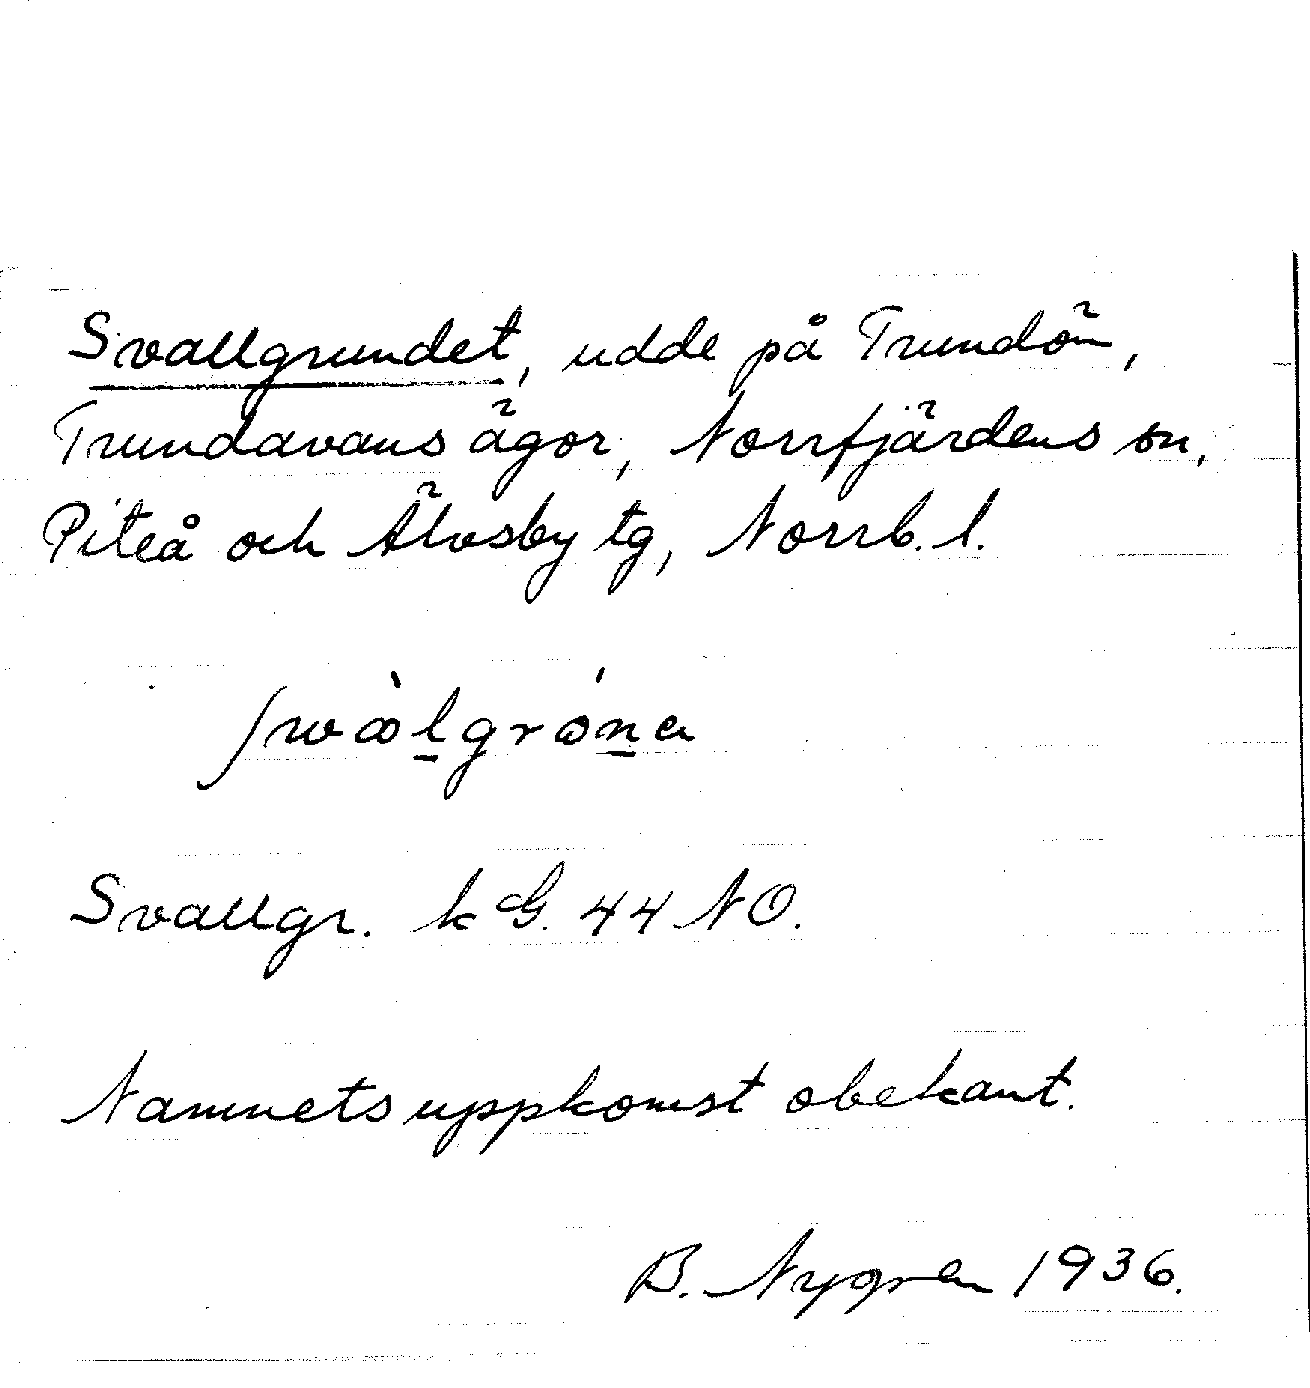 Svallgrundet, udde på Trundön,
Trundavans ägor, Norrfjärdens sn,
Piteå och Älvsby tg, Norrb. l.
Svallgr. k G. 44 NO.
Namnets uppkomst obekant.
B. Nygren 1936.